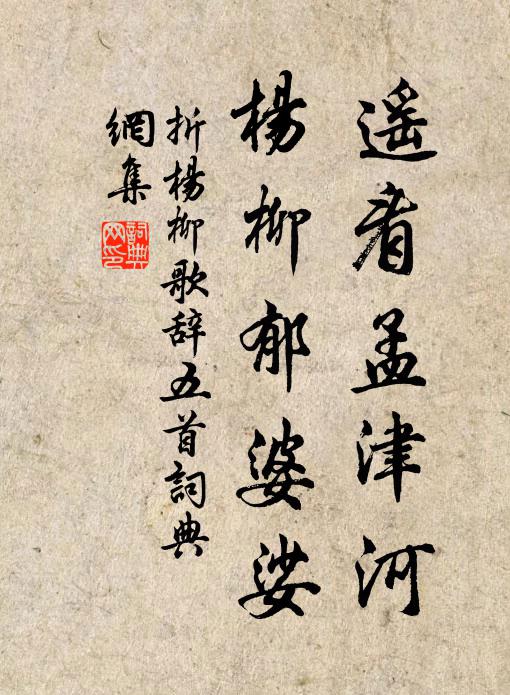 遥看孟津河
楊柳郁婆娑
折楊柳歌辞五首詞典
網集
詞典网印